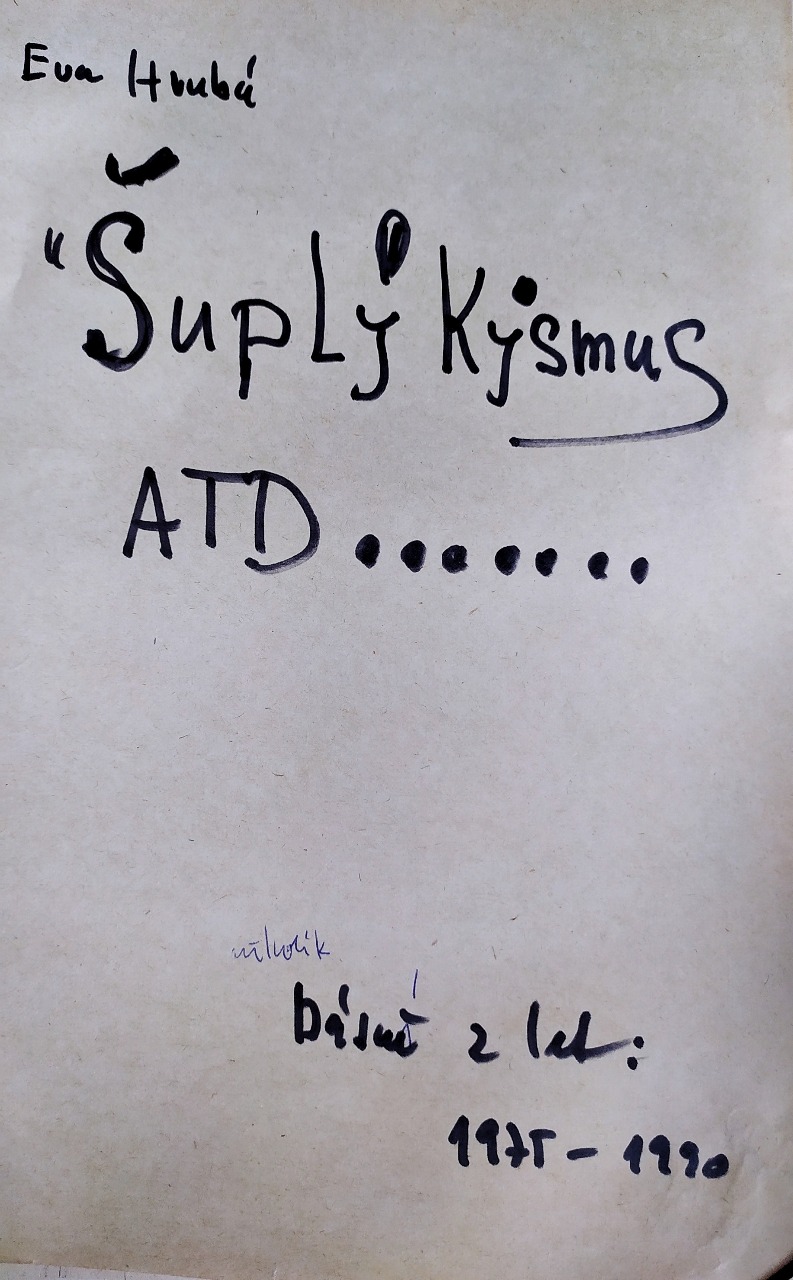 Eva Hrubá
"Šuplý Kýsmus
ATD.......
několik
básně z let:
1975 - 1990